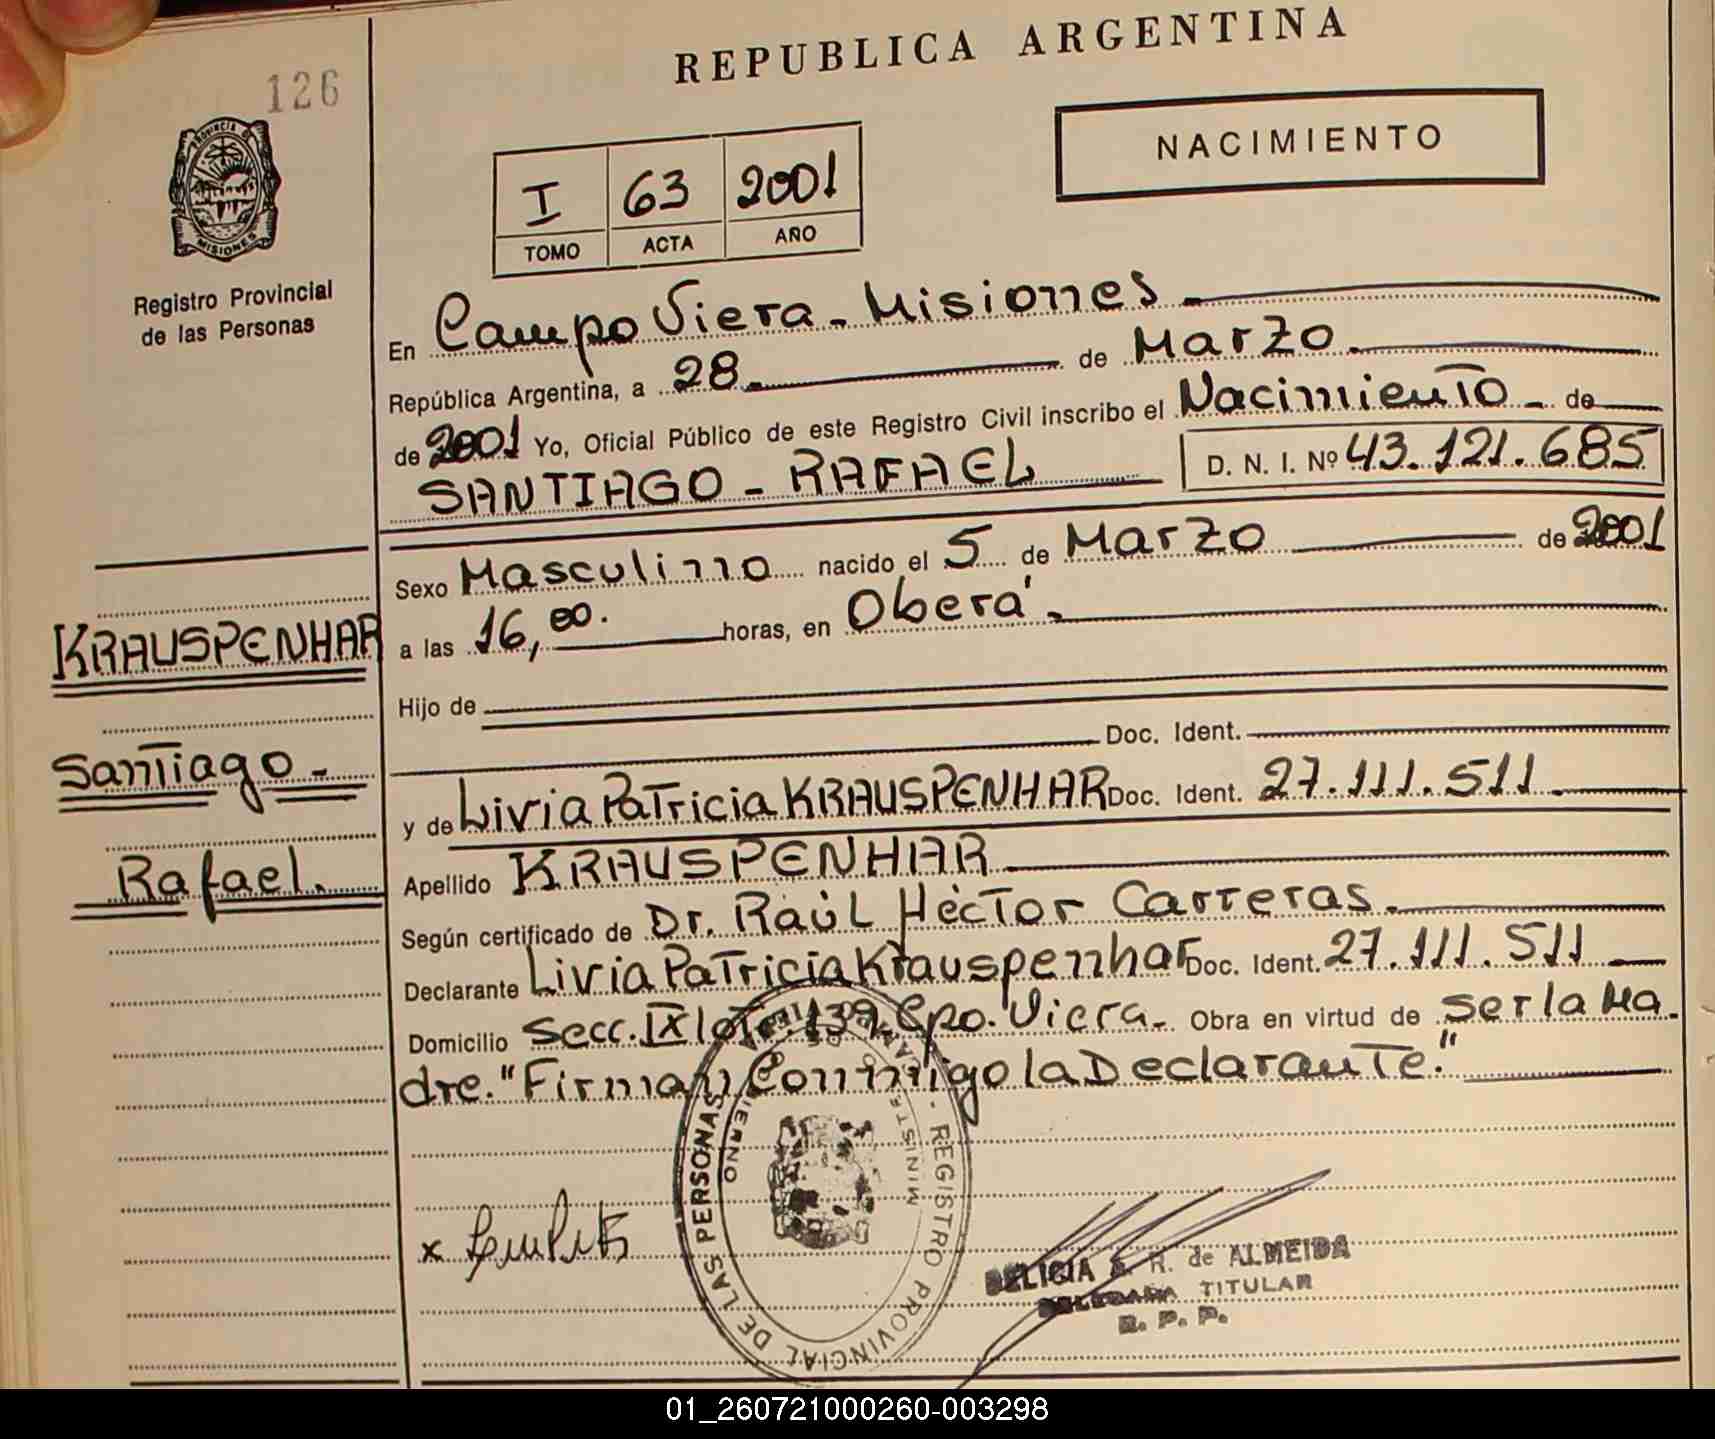 126
REPUBLICA ARGENTINA
PROVINCIA DE
MISIONES
Registro Provincial
de las Personas
NACIMIENTO
I 63 2001
TOMO ACTA AÑO
En Campo Viera - Misiones -
República Argentina, a 28 - de Marzo -
de 2001 Yo, Oficial Público de este Registro Civil inscribo el Nacimiento - de
SANTIAGO - RAFAEL D. N. I. Nº 43.121.685
Sexo Masculino nacido el 5 de Marzo de 2001
a las 16,00. horas, en Oberá -
Hijo de
Doc. Ident.
y de Livia Patricia KRAUSPENHAR Doc. Ident. 27.111.511 -
Apellido KRAUSPENHAR
Según certificado de Dr. Raúl Héctor Carreras -
Declarante Livia Patricia Krauspenhar Doc. Ident. 27.111.511
Domicilio Secc. IX lote 139 Cpo. Viera - Obra en virtud de ser la Ma-
dre. "Firman Conmigo la Declarante."
KRAUSPENHAR
Santiago -
Rafael.
REGISTRO PROVINCIAL DE LAS PERSONAS
x
DELICIA R. de ALMEIDA
DELEGADA TITULAR
R. P. P.
01_260721000260-003298